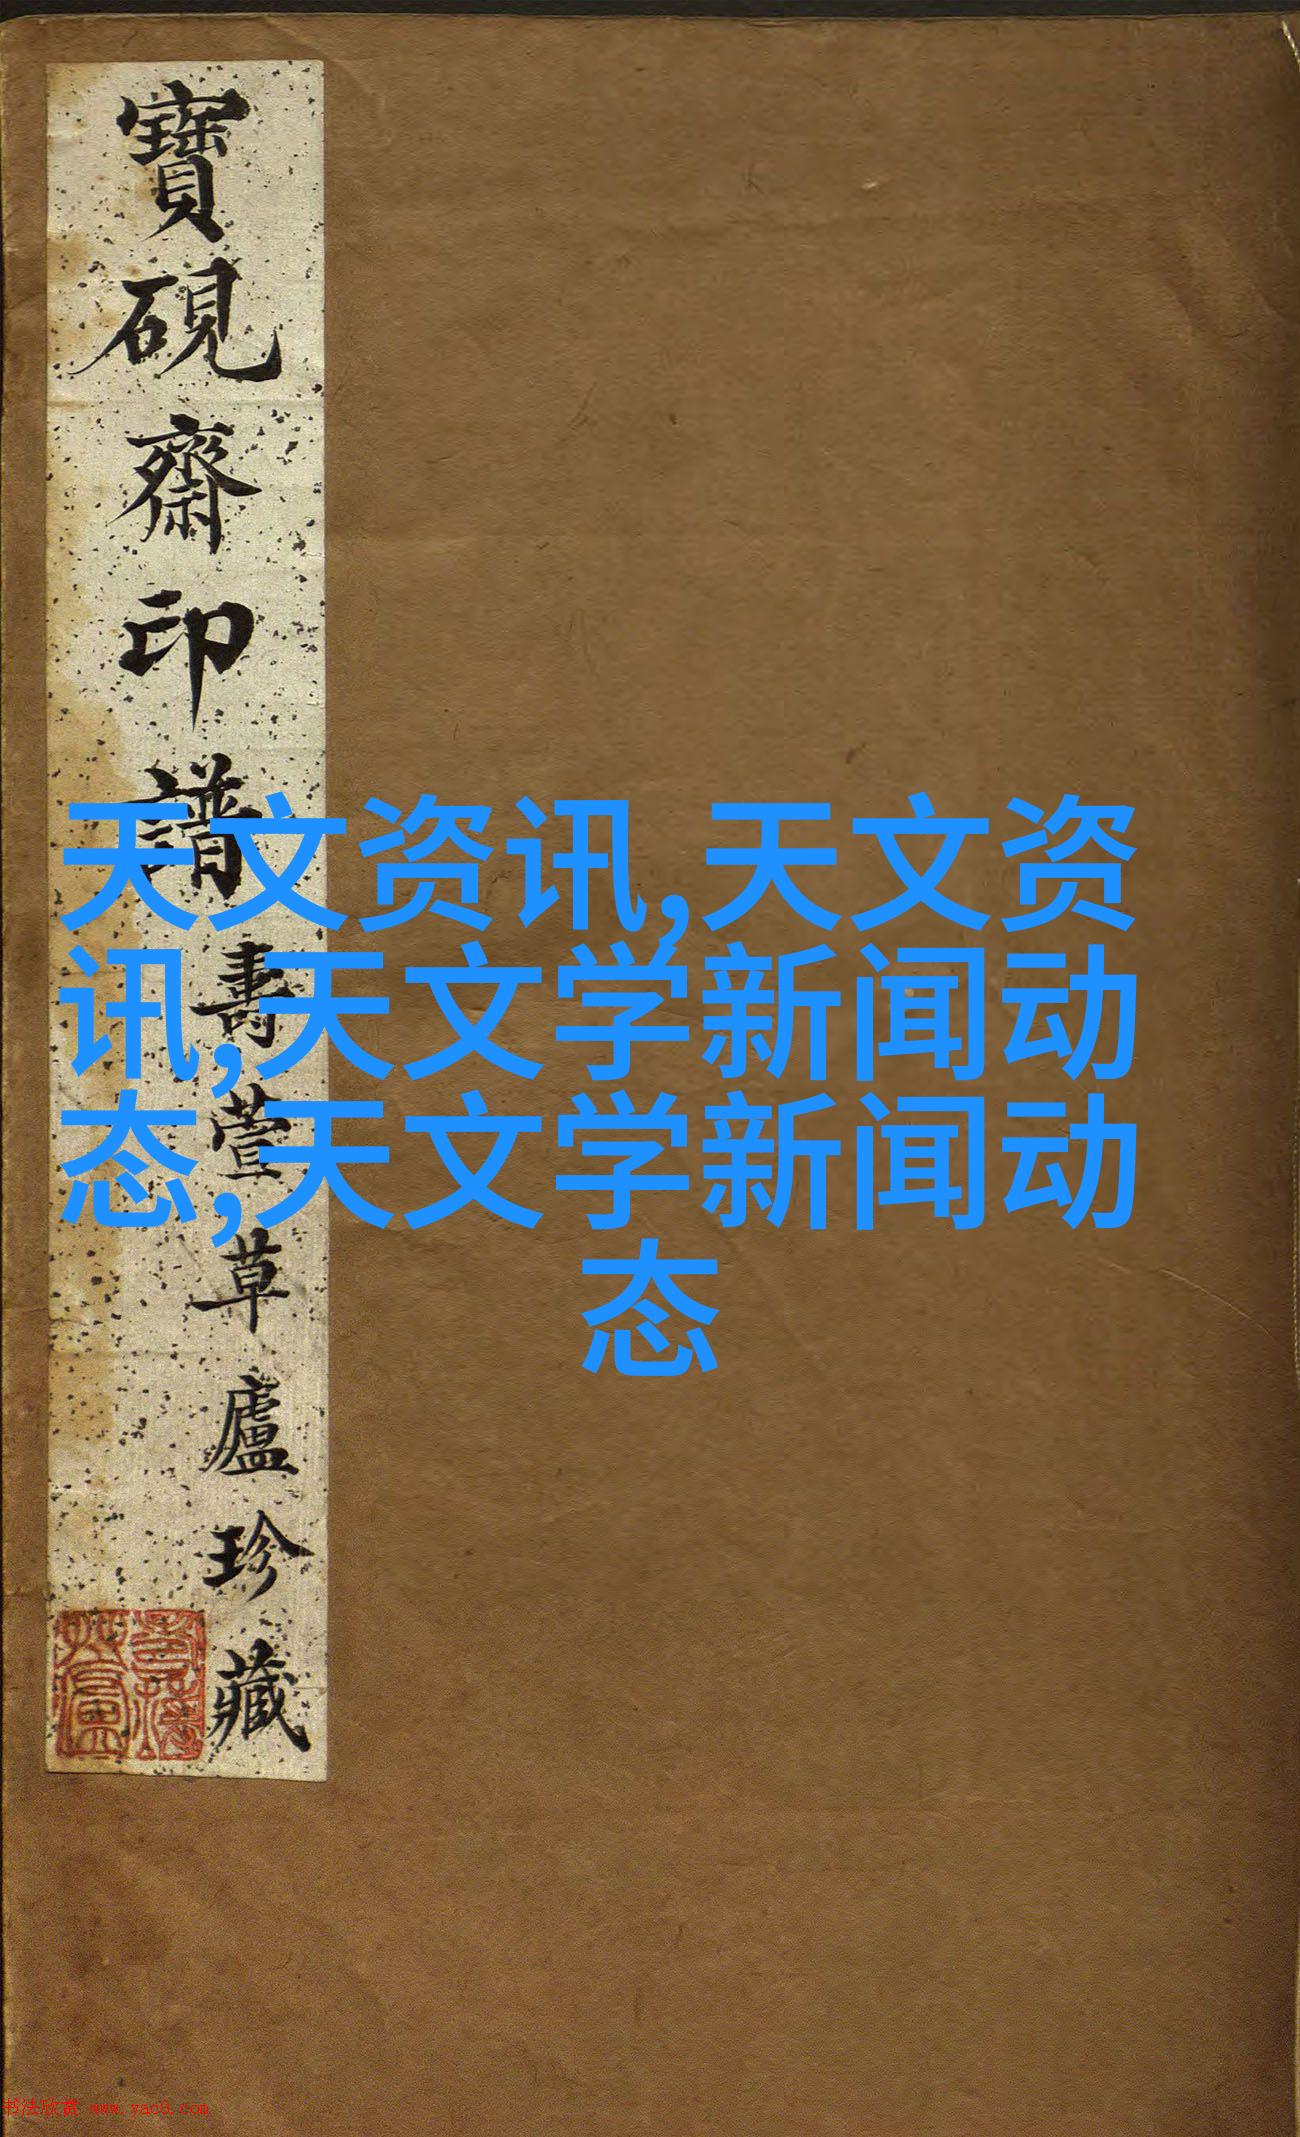 寶硯齋印譜
壽萱草廬珍藏
天文资讯,天文资
讯,天文学新闻动
态,天文学新闻动
态
书法欣赏 www.yac8.com